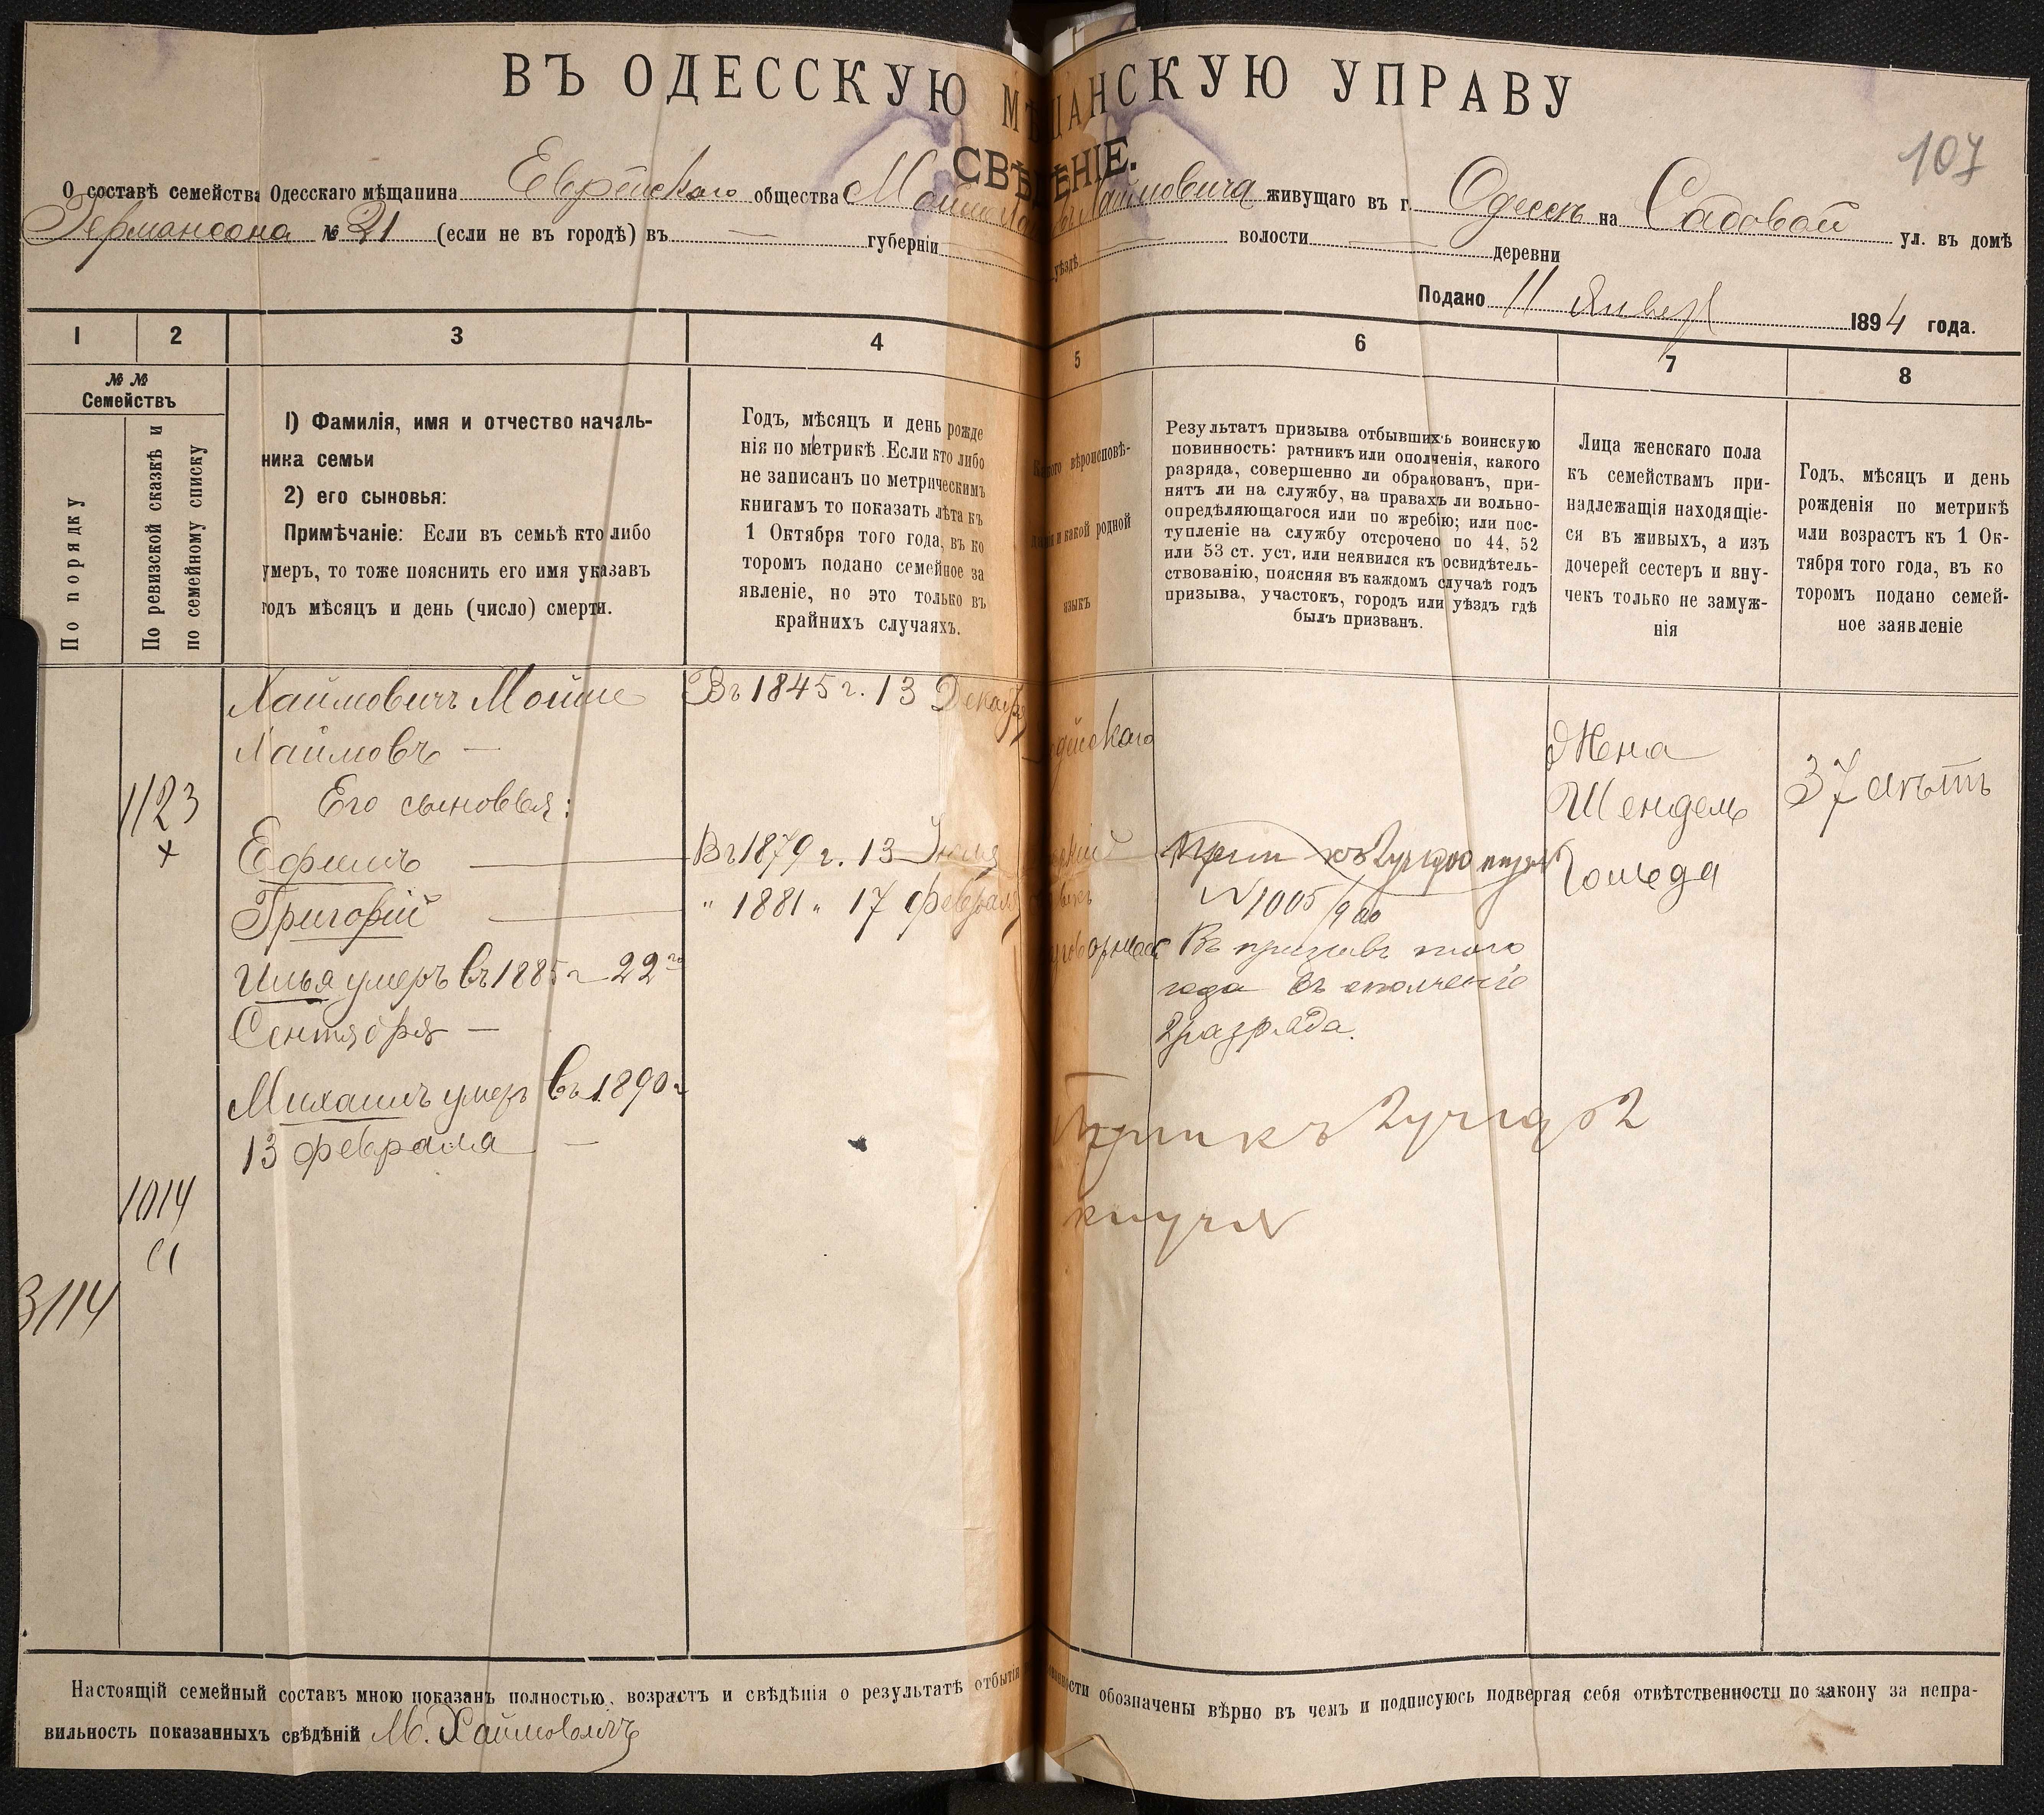 ВЪ ОДЕССКУЮ МѢЩАНСКУЮ УПРАВУ
СВѢДѢНІЕ.
107
О составѣ семейства Одесскаго мѣщанина Еврейскаго общества Хаимовича живущаго въ г. Одессѣ на Садовой ул. въ домѣ
Германсона № 21 (если не въ городѣ) въ — губерніи уѣздѣ — волости — деревни
Подано 11 Январ 1894 года.
1 2 3 4 5 6 7 8
№ №
Семействъ
По порядку
По ревизской сказкѣ и
по семейному списку
1) Фамилія, имя и отчество началь-
ника семьи
2) его сыновья:
Примѣчаніе: Если въ семьѣ кто либо
умеръ, то тоже пояснить его имя указавъ
годъ мѣсяцъ и день (число) смерти.
Годъ, мѣсяцъ и день рожде
нія по метрикѣ. Если кто либо
не записанъ по метрическимъ
книгамъ то показать лѣта къ
1 Октября того года, въ ко
торомъ подано семейное за
явленіе, но это только въ
крайнихъ случаяхъ.
вѣроисповѣ-
и какой родной
языкъ
Результатъ призыва отбывшихъ воинскую
повинность: ратникъ или ополченія, какого
разряда, совершенно ли обракованъ, при-
нятъ ли на службу, на правахъ ли вольно-
опредѣляющагося или по жребію; или пос-
тупленіе на службу отсрочено по 44, 52
или 53 ст. уст. или неявился къ освидѣтель-
ствованію, поясняя въ каждомъ случаѣ годъ
призыва, участокъ, городъ или уѣздъ гдѣ
былъ призванъ.
Лица женскаго пола
къ семействамъ при-
надлежащія находящіе-
ся въ живыхъ, а изъ
дочерей сестеръ и вну-
чекъ только не замуж-
нія
Годъ, мѣсяцъ и день
рожденія по метрикѣ
или возрастъ къ 1 Ок-
тября того года, въ ко
торомъ подано семей-
ное заявленіе
Хаимовичъ Мойше
Хаимовъ —
Его сыновья:
Ефимъ
Григорій
Илья умеръ въ 1885 г 22го
Сентября —
Михаилъ умеръ въ 1890 г
13 февраля —
1123
х
1014
3114
Въ 1845 г. 13 Декабря
Въ 1879 г. 13
" 1881 " 17 февраля
№ 1005/900
Въ призывъ того
года въ ополченіе
2 разряда.
Прип къ 2 уч 1902
Жена
Шендель
Гольда
37 лѣтъ
Настоящій семейный составъ мною показанъ полностью, возрастъ и свѣдѣнія о результатѣ отбытія обозначены вѣрно въ чемъ и подписуюсь подвергая себя отвѣтственности по закону за непра-
вильность показанныхъ свѣдѣній М. Хаимовичъ